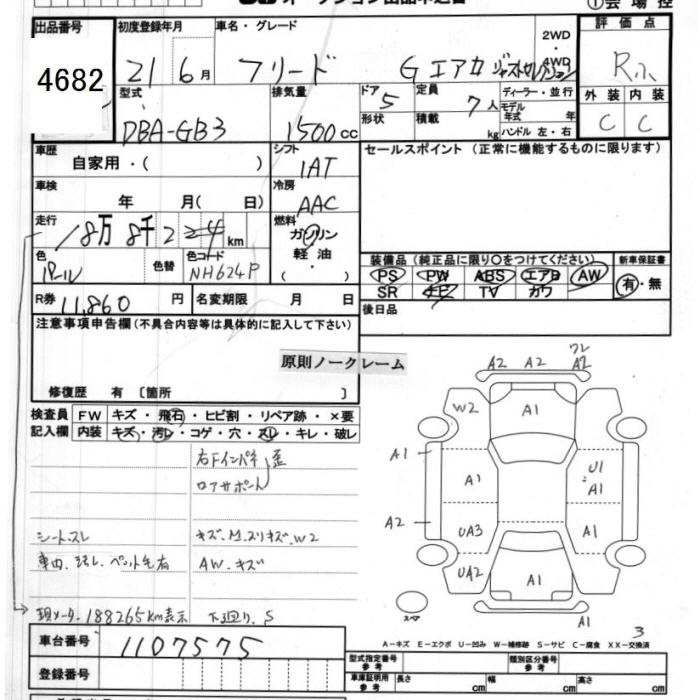 オークション出品申込書
①会場控
出品番号 4682
初度登録年月 21 6月
車名・グレード フリード G エアロ ジャストセレクション
2WD・4WD
評価点 R
外装 C 内装 C
型式 DBA-GB3
排気量 1500cc
ドア 5
形状
定員 7人
積載 kg
ディーラー・並行
モデル年式 年式
ハンドル 左・右
車歴 自家用・( )
シフト IAT
セールスポイント (正常に機能するものに限ります)
車検 年 月( 日)
冷房 AAC
走行 18万 8千 2 km
燃料 ガソリン 軽油・( )
色 パール 色替 色コード NH624P
装備品 (純正品に限り○をつけてください)
新車保証書 有・無
PS PW ABS エアB AW
SR ナビ TV カワ
R券 11,860 円
名変期限 月 日
後日品
注意事項申告欄 (不具合内容等は具体的に記入して下さい)
原則ノークレーム
修復歴 有 〔箇所 〕
検査員記入欄
FW キズ・飛石・ヒビ割・リペア跡・×要
内装 キズ・汚レ・コゲ・穴・スレ・キレ・破レ
右Fインパネ 歪
ロアサポート
シート.スレ
キズ.M.スリキズ.W2
車内.汚レ.ペット毛有
AW.キズ
現メーター188265km表示 下廻り.S
A2 A2 ワレ A2
W2 A1
A1 A1 U1 A1
A2 UA3 A1
UA2 A1
A1
スペア
3
A-キズ E-エクボ U-凹み W-補修跡 S-サビ C-腐食 XX-交換済
車台番号 1107575
登録番号
型式指定番号 参考
類別区分番号 参考
車庫証明用参考 長さ cm 幅 cm 高さ cm